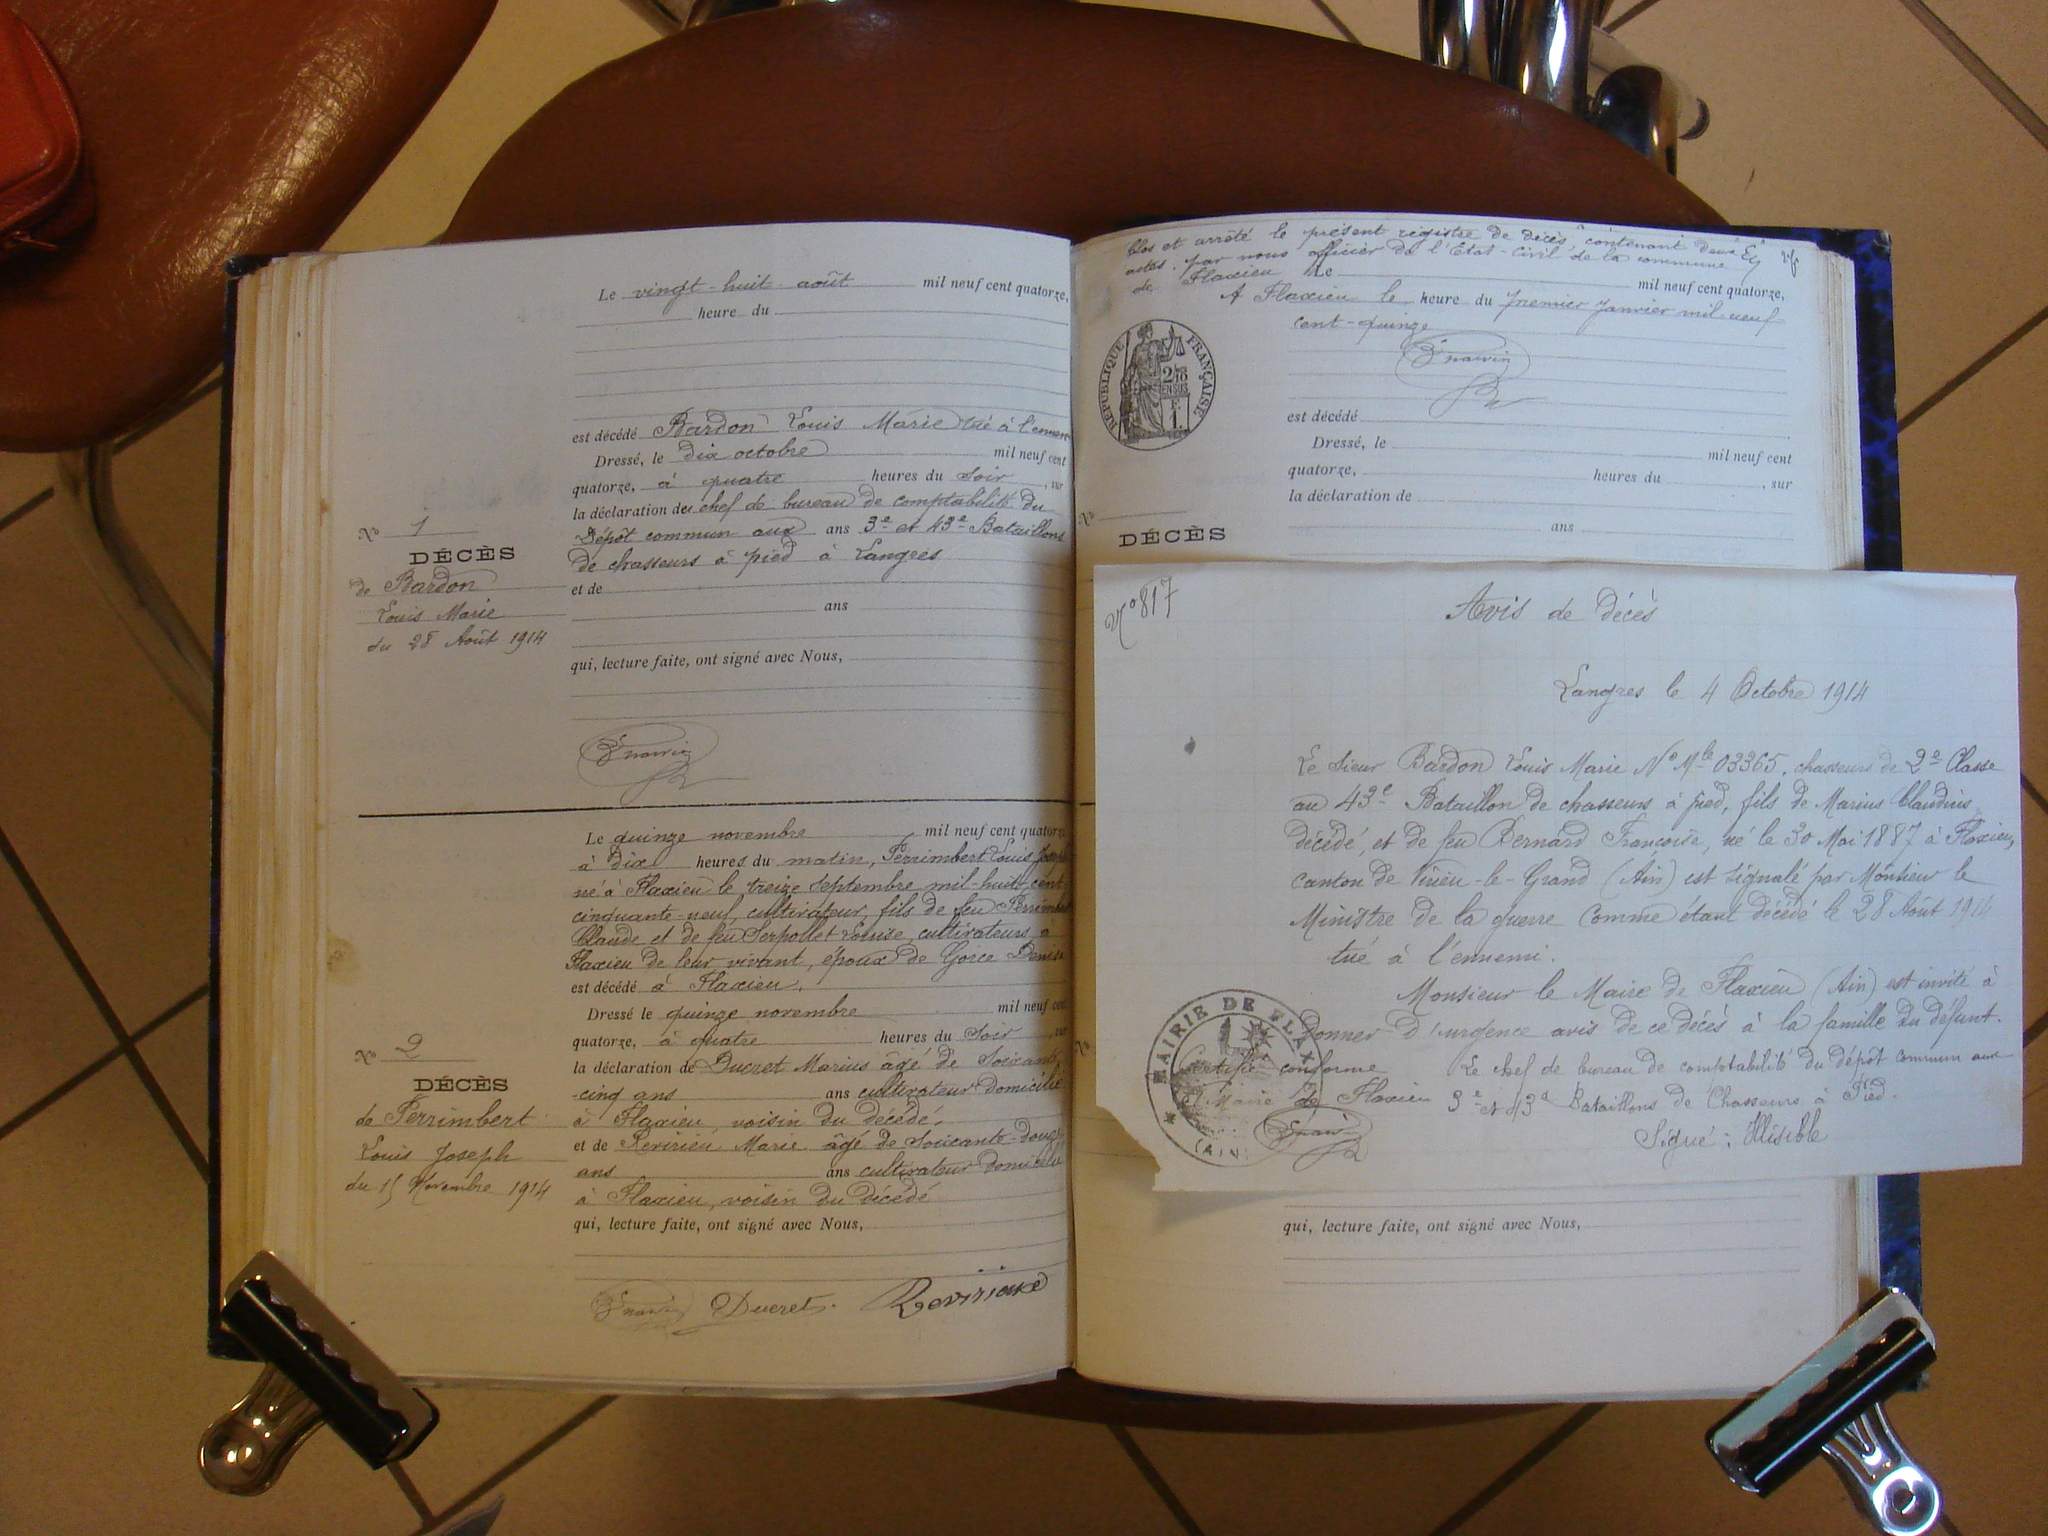 Le vingt-huit août mil neuf cent quatorze,
heure du
est décédé Bardon Louis Marie tué à l'ennemi
Dressé, le dix octobre mil neuf cent
quatorze, à quatre heures du soir, sur
la déclaration du chef de bureau de comptabilité du
Dépôt commun aux ans 3e et 43e Bataillons
de chasseurs à pied à Langres
et de
ans
qui, lecture faite, ont signé avec Nous,
No 1
DÉCÈS
de Bardon
Louis Marie
du 28 Août 1914
Le quinze novembre mil neuf cent quatorze
à dix heures du matin, Perrimbert Louis Joseph
né à Flaxieu le treize septembre mil-huit cent
cinquante-neuf, cultivateur, fils de feu Perrimbert
Claude et de feu Serpollet Louise, cultivateurs à
Flaxieu de leur vivant, époux de Gorce Denise
est décédé à Flaxieu.
Dressé le quinze novembre mil neuf cent
quatorze, à quatre heures du soir, sur
la déclaration de Ducret Marius âgé de soixante
-cinq ans ans cultivateur domicilié
à Flaxieu, voisin du décédé.
et de Revirieu Marie âgé de soixante-douze
ans ans cultivateur domicilié
à Flaxieu, voisin du décédé
qui, lecture faite, ont signé avec Nous,
Ducret
No 2
DÉCÈS
de Perrimbert
Louis Joseph
du 15 Novembre 1914
Clos et arrêté le présent registre de décès, contenant deux
actes. par nous officier de l'Etat-Civil de la commune
de Flaxieu Le mil neuf cent quatorze,
A Flaxieu le heure du premier Janvier mil-neuf
cent-quinze
RÉPUBLIQUE FRANÇAISE
2/10 EN SUS
est décédé
Dressé, le mil neuf cent
quatorze, heures du , sur
la déclaration de
ans
No
DÉCÈS
No 817
Avis de décès
Langres le 4 Octobre 1914
Le Sieur Bardon Louis Marie No Mle 03365, chasseurs de 2e Classe
au 43e Bataillon de chasseurs à pied, fils de Marius Claudius
décédé, et de feu Bernard Françoise, né le 30 Mai 1887 à Flaxieu,
canton de Virieu-le-Grand (Ain) est signalé par Monsieur le
Ministre de la guerre comme étant décédé le 28 Août 1914
tué à l'ennemi.
Monsieur le Maire de Flaxieu (Ain) est invité à
donner d'urgence avis de ce décès à la famille du défunt.
Certifié conforme Le chef de bureau de comptabilité du dépôt commun aux
Maire de Flaxieu 3e et 43e Bataillons de Chasseurs à Pied.
Signé : Illisible
MAIRIE DE FLAX
(AIN)
qui, lecture faite, ont signé avec Nous,